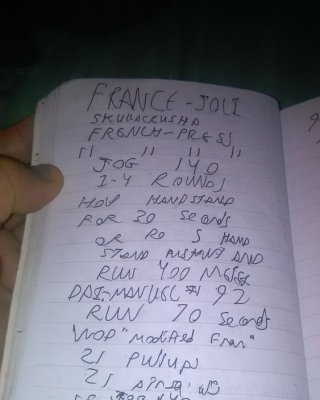 FRANCE-JOLI
SKULLACRUSHA
FRENCH-PRESS
" " " "
JOG 140
1-4 ROUNDS
HOLD HANDSTAND
FOR 20 Seconds
OR DO 5 HAND
STAND AND
RUN 400
92
RUN 70 Seconds
WOD "Modified Fran"
21 PULLUPS
21